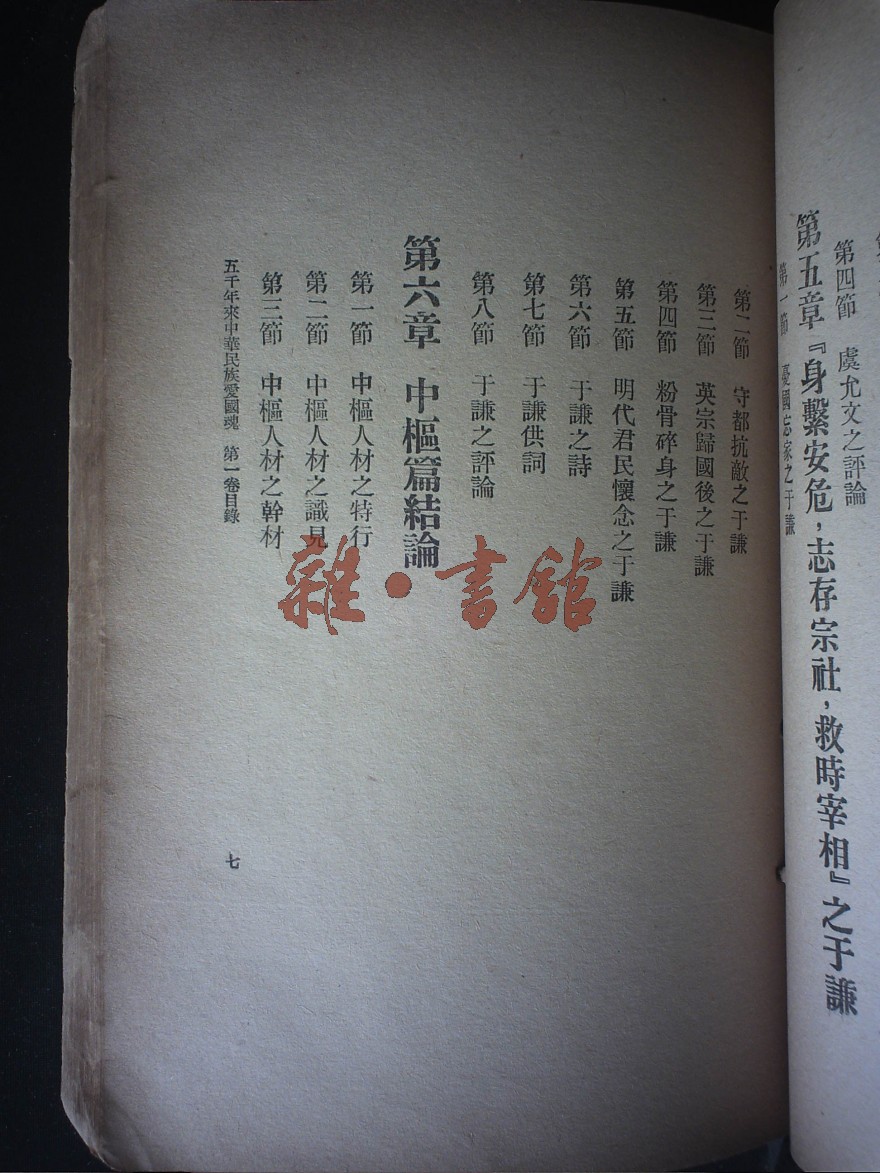 第四節　虞允文之評論
第五章『身繫安危，志存宗社，救時宰相』之于謙
第一節　憂國忘家之于謙
第二節　守都抗敵之于謙
第三節　英宗歸國後之于謙
第四節　粉骨碎身之于謙
第五節　明代君民懷念之于謙
第六節　于謙之詩
第七節　于謙供詞
第八節　于謙之評論
第六章　中樞篇結論
第一節　中樞人材之特行
第二節　中樞人材之識見
第三節　中樞人材之幹材
五千年來中華民族愛國魂　第一卷目錄
七
雜·書館